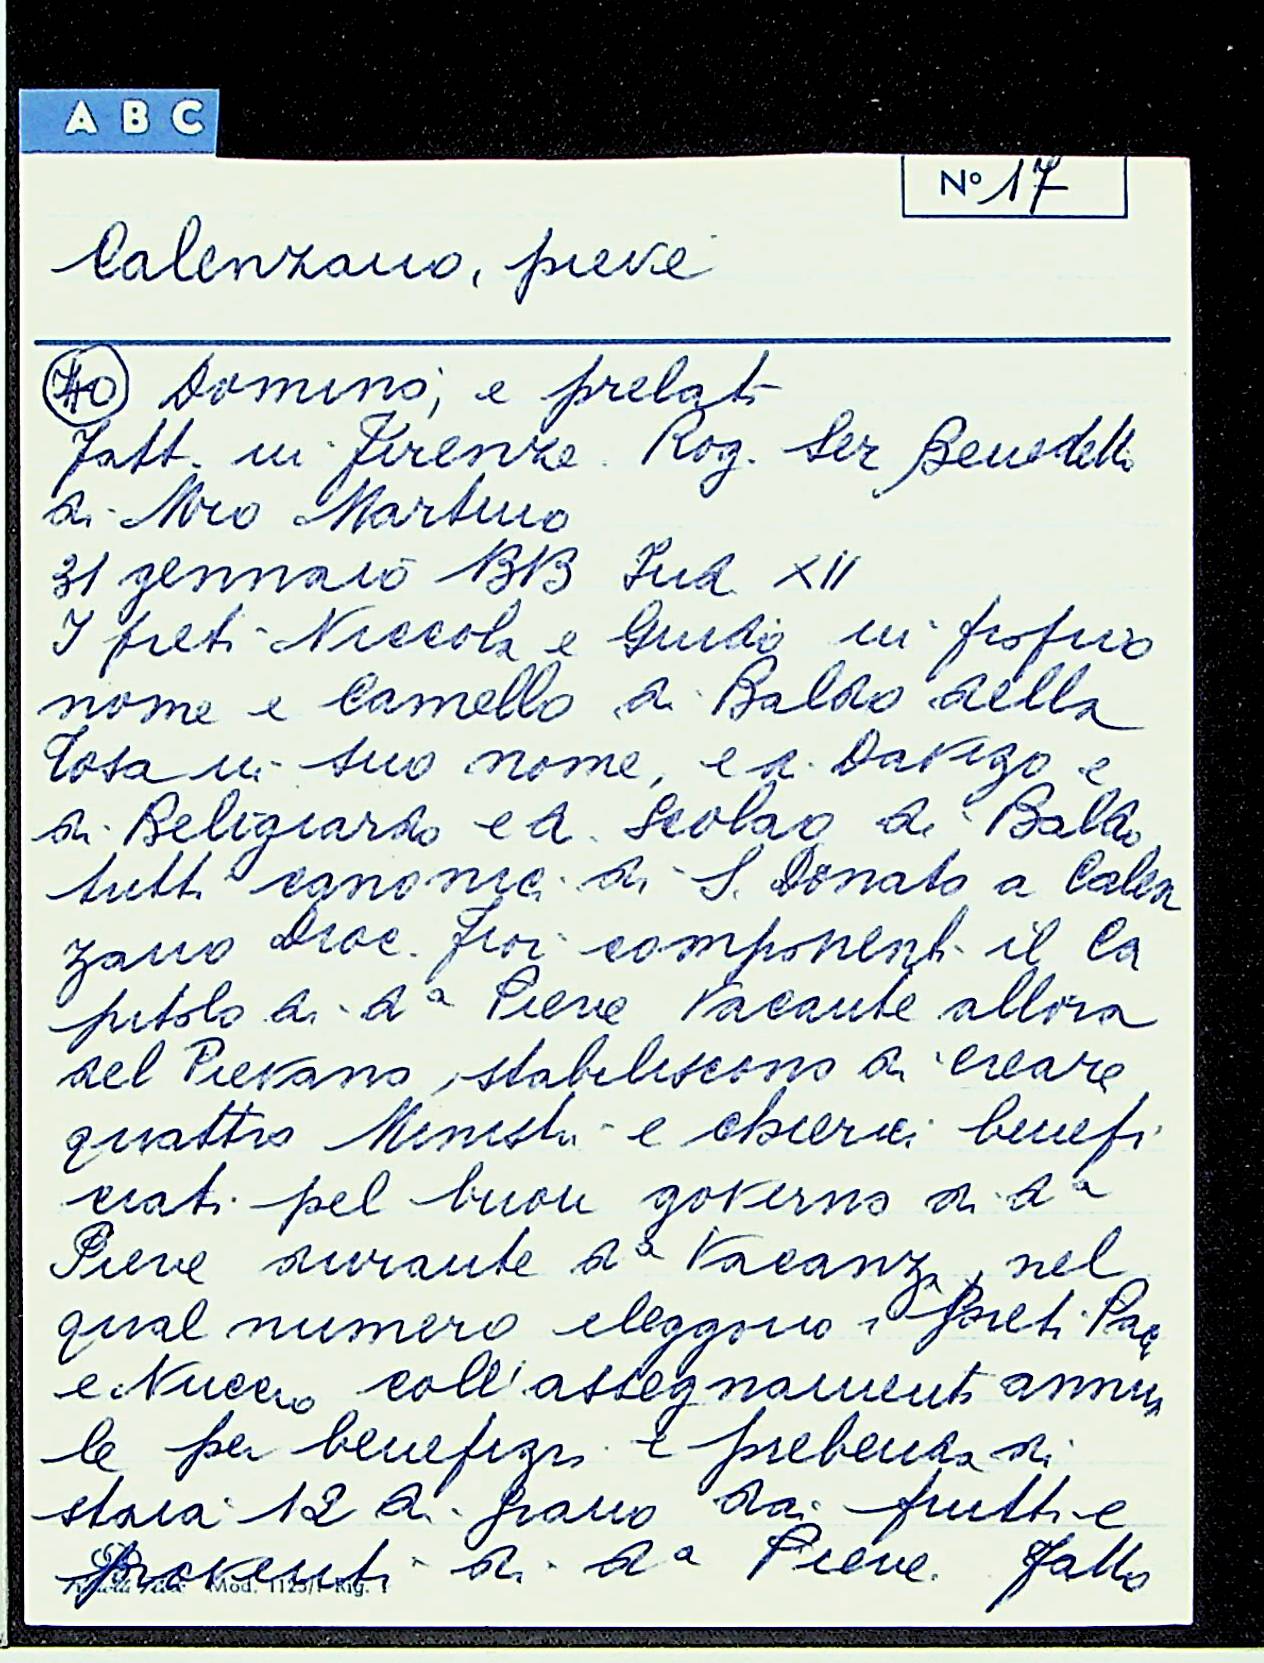 A B C
Nº 17
Calenzano, pieve
40 Domino, e prelati
Fatt. in Firenze. Rog. Ser Benedetto
di Mro Martino
31 gennaio 1313 Ind. XII
I preti Niccola e Guido in proprio
nome e Camello di Baldo della
Tosa in suo nome, e di Davizo e
di Beliguardo e di Scolaio di Baldo
tutti canonici di S. Donato a Calen
zano Dioc. Fior. componenti il Ca
pitolo di dª Pieve vacante allora
del Pievano, stabiliscono di creare
quattro Ministri e chierici benefi
ciati pel buon governo di dª
Pieve durante dª Vacanza, nel
qual numero eleggono i Preti Pace
e Nuccio coll'assegnamento annua
le per benefizio e prebenda di
staia 12 di grano dai frutti e
proventi di dª Pieve. Fatto
Mod. 1125/1 Rig. 1